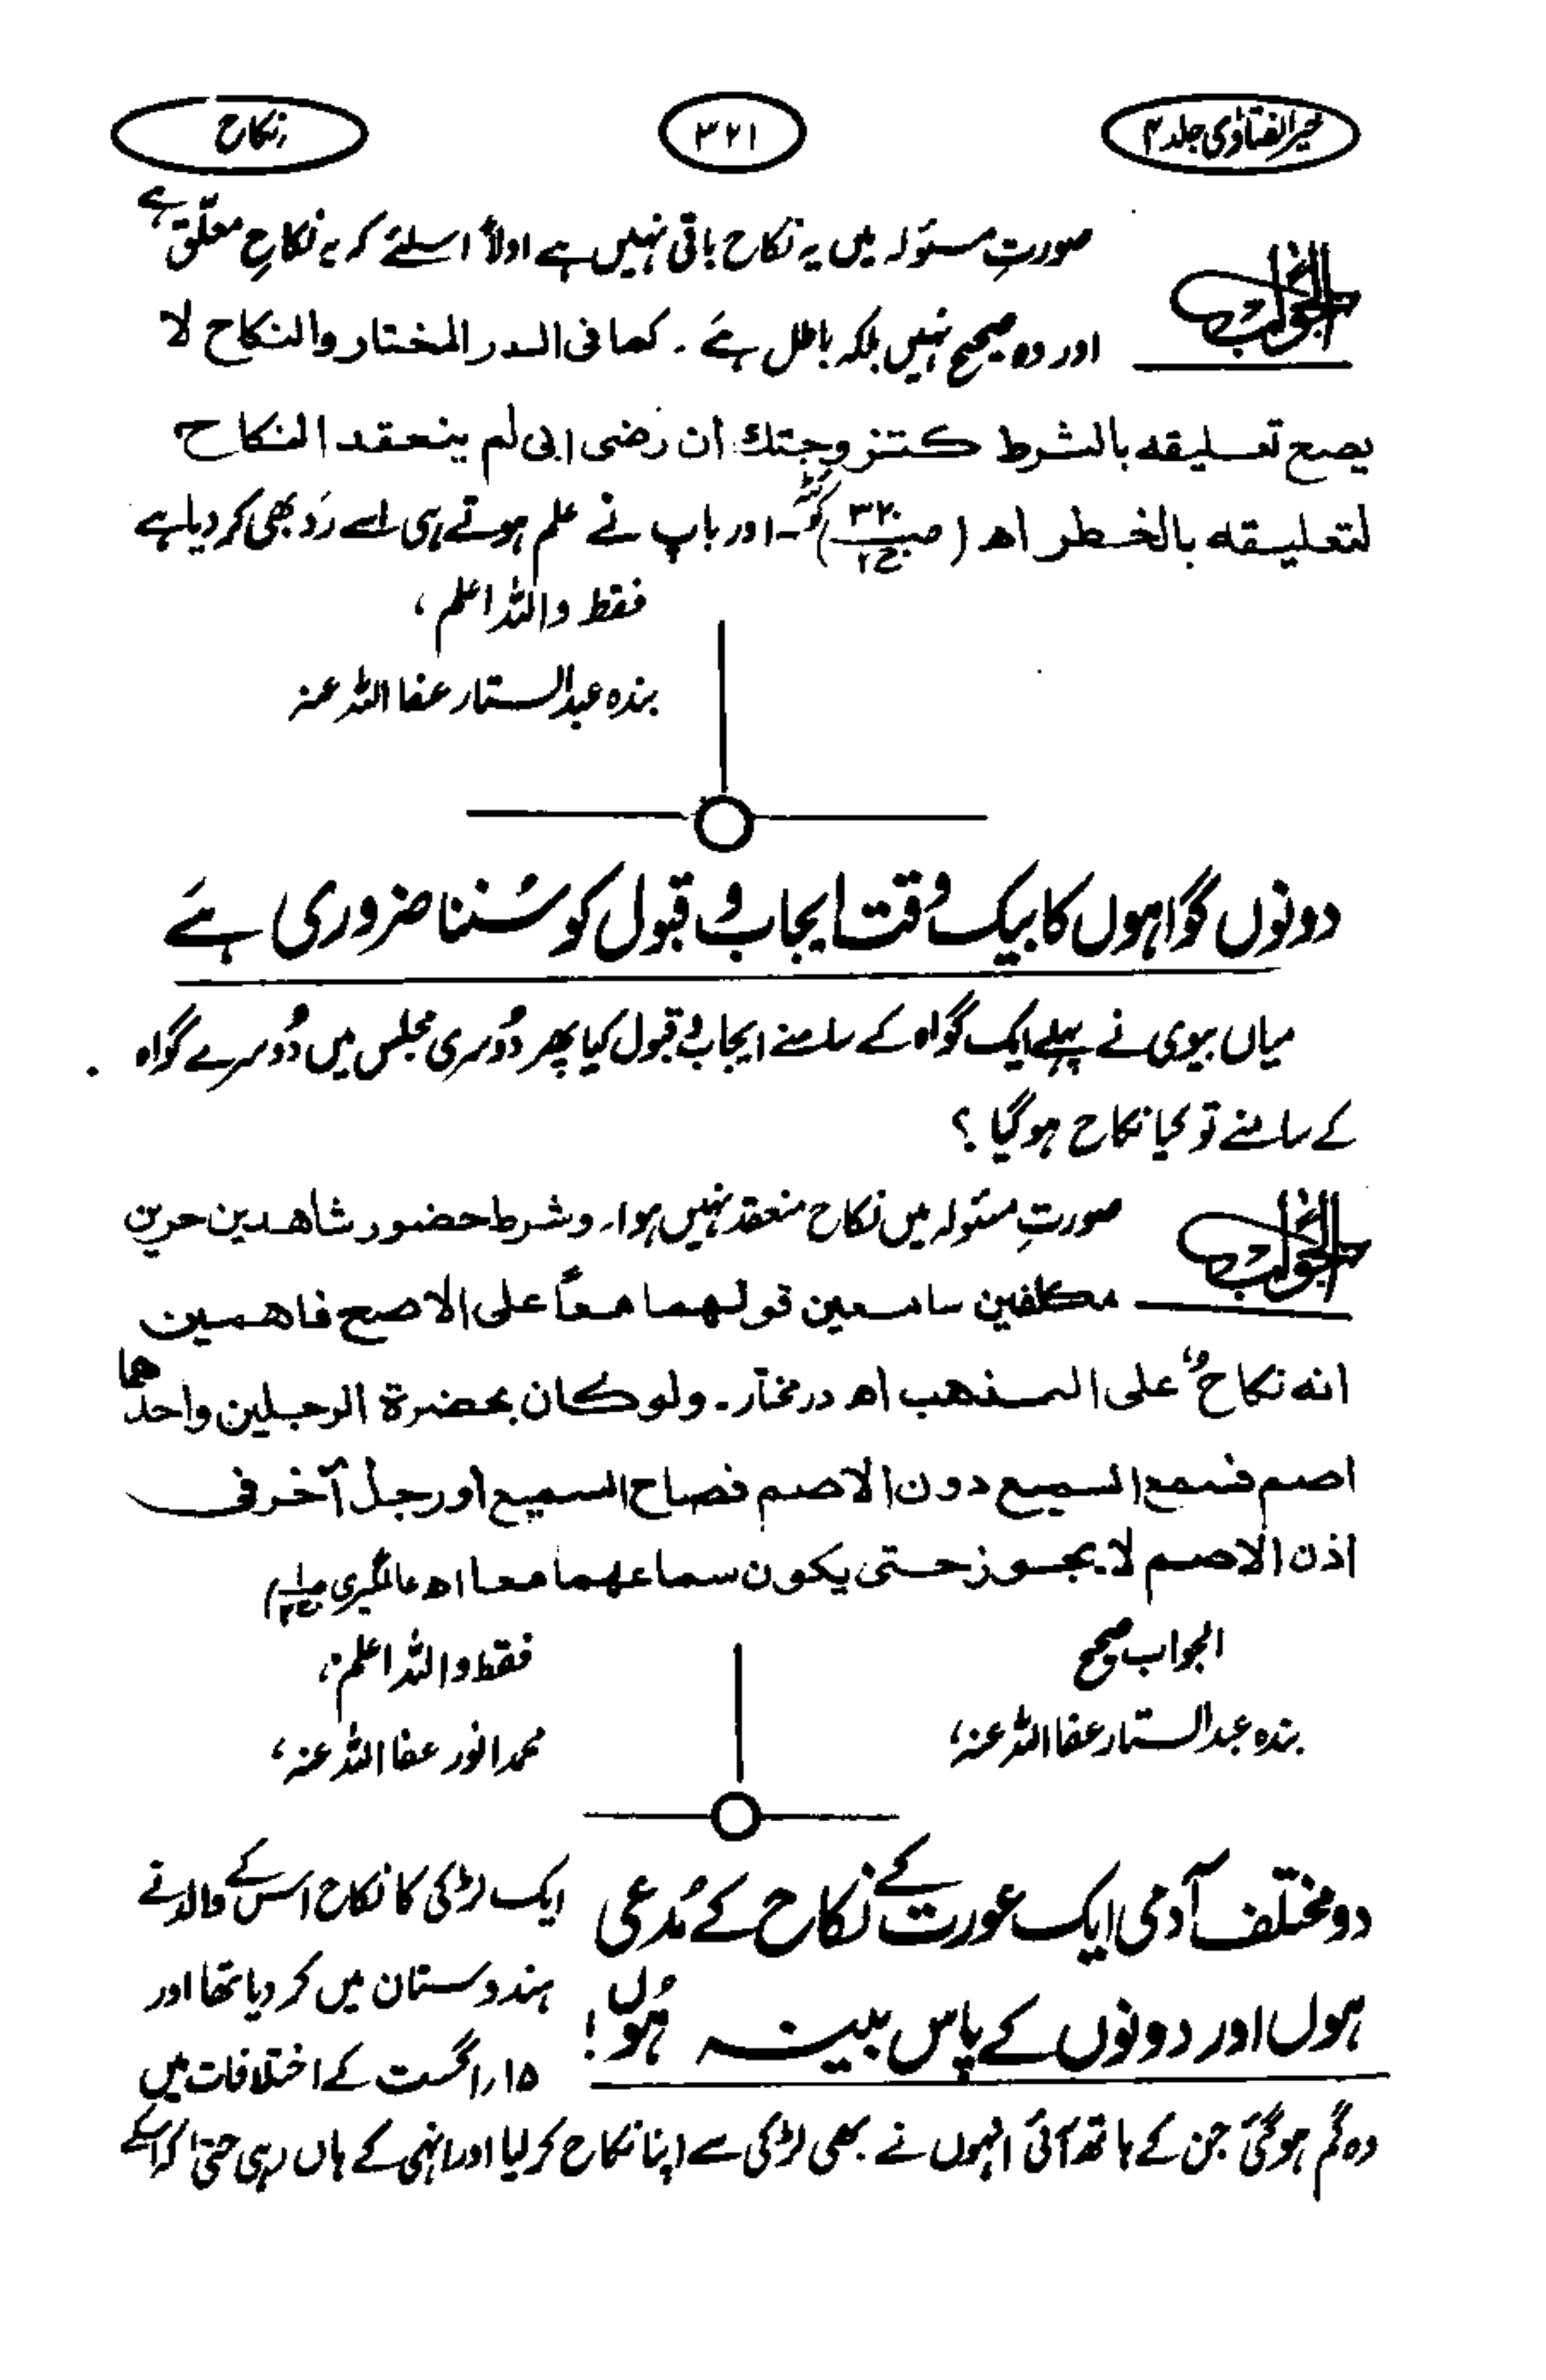 خیر الفتاوٰی جلد ۴
۳۲۱
نکاح
الجواب
صورتِ مسئولہ میں یہ نکاح باقی نہیں ہے اولاً اسلئے کہ یہ نکاحِ معلّق ہے
اور وہ صحیح نہیں بلکہ باطل ہے ۔ کما فی الدر المختار والنکاح لا
یصح تعلیقه بالشرط کتزوجتك ان رضی ابی لم ینعقد النکاح
لتعلیقه بالخطر اھ ( ص۳۲۰ ج۲ ) ۔ اور باپ نے علم ہوتے ہی اسے رَد بھی کر دیا ہے
فقط واللہ اعلم ،
بندہ عبدالستار عفا اللہ عنہ
دونوں گواہوں کا بیک وقت ایجاب و قبول کو سُننا ضروری ہے
میاں بیوی نے پہلے ایک گواہ کے سامنے ایجاب و قبول کیا پھر دُوسری مجلس میں دُوسرے گواہ
کے سامنے تو کیا نکاح ہوگیا ؟
الجواب
صورتِ مسئولہ میں نکاح منعقد نہیں ہوا۔ وشرط حضور شاهدین حرین
مکلفین سامعین قولهما معاً علی الاصح فاهمین
انه نکاحٌ علی المذهب اھ درمختار ۔ ولو کان بحضرة الرجلین واحدهما
اصم فسمع السمیع دون الاصم فصاح السمیع اورجل آخر فی
اذن الاصم لا یجوز حتی یکون سماعهما معا اھ عالمگیری
الجواب صحیح
بندہ عبدالستار عفا اللہ عنہ ،
فقط واللہ اعلم ،
محمد انور عفا اللہ عنہ ،
دو مختلف آدمی ایک عورت کے نکاح کے مُدعی
ہوں اور دونوں کے پاس بینہ ہُوں !
ایک لڑکی کا نکاح اس کے والد نے
ہندوستان میں کر دیا تھا اور
۱۵/ اگست کے اختلافات میں
وہ گم ہوگئی جن کے ہاتھ آئی انہوں نے بھی لڑکی سے اپنا نکاح کر لیا اور انہی کے ہاں رہی حتیٰ کہ اسکے